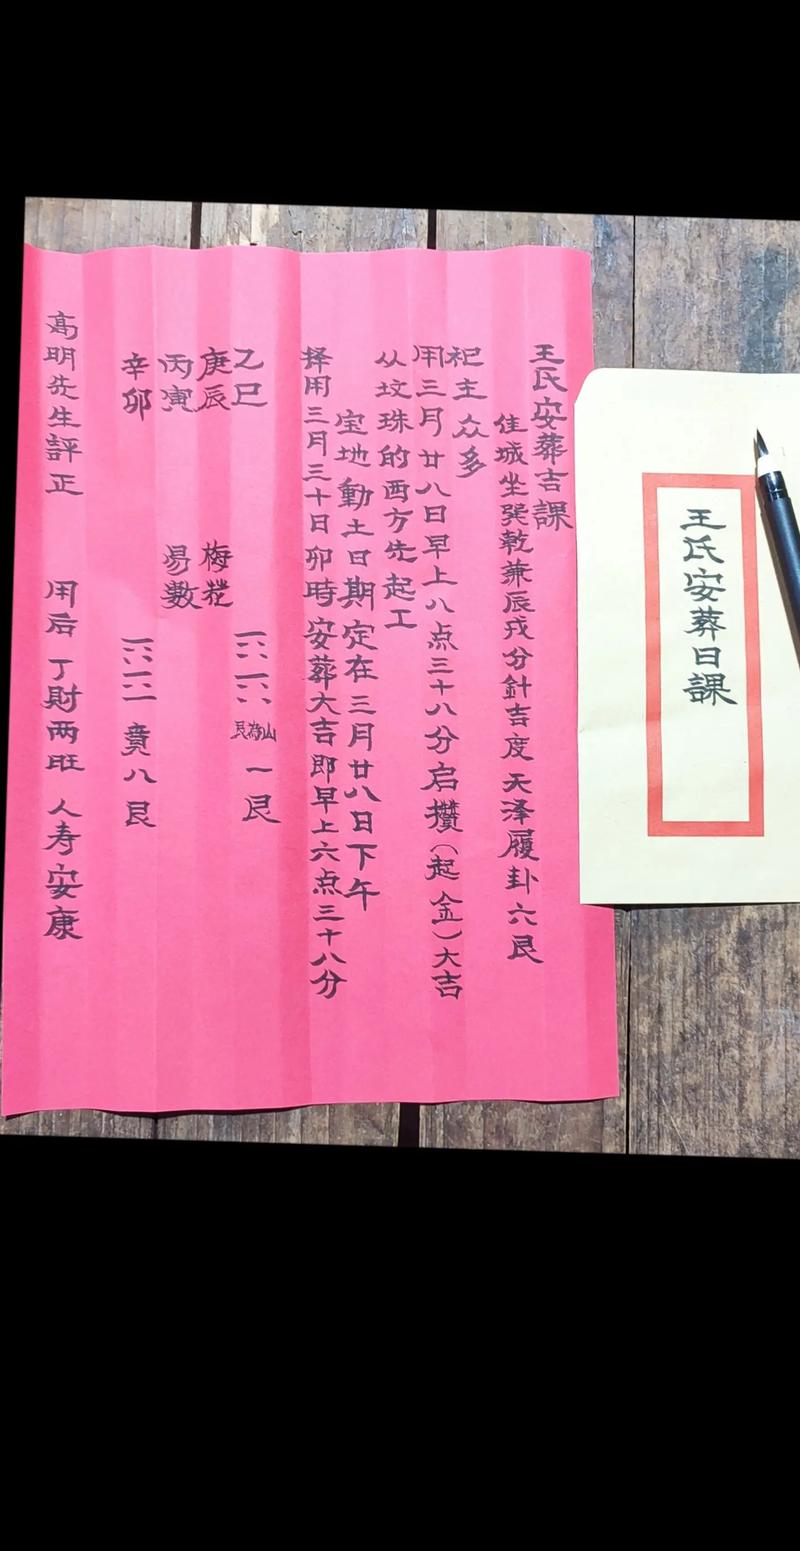 王氏安葬吉課
佳城坐巽乾兼辰戌分針吉度天泽履卦六艮
祀主众多
用三月廿八日早上八点三十八分启攒(起金)大吉
从坟珠的西方先起工
宝地動土日期定在三月廿八日下午
择用三月三十日卯時安葬大吉即早上六点三十八分
乙巳
庚辰
丙寅
辛卯
梅花
易數
艮為山
一艮
賁八艮
高明先生評正 用后丁財两旺人寿安康
王氏安葬日課